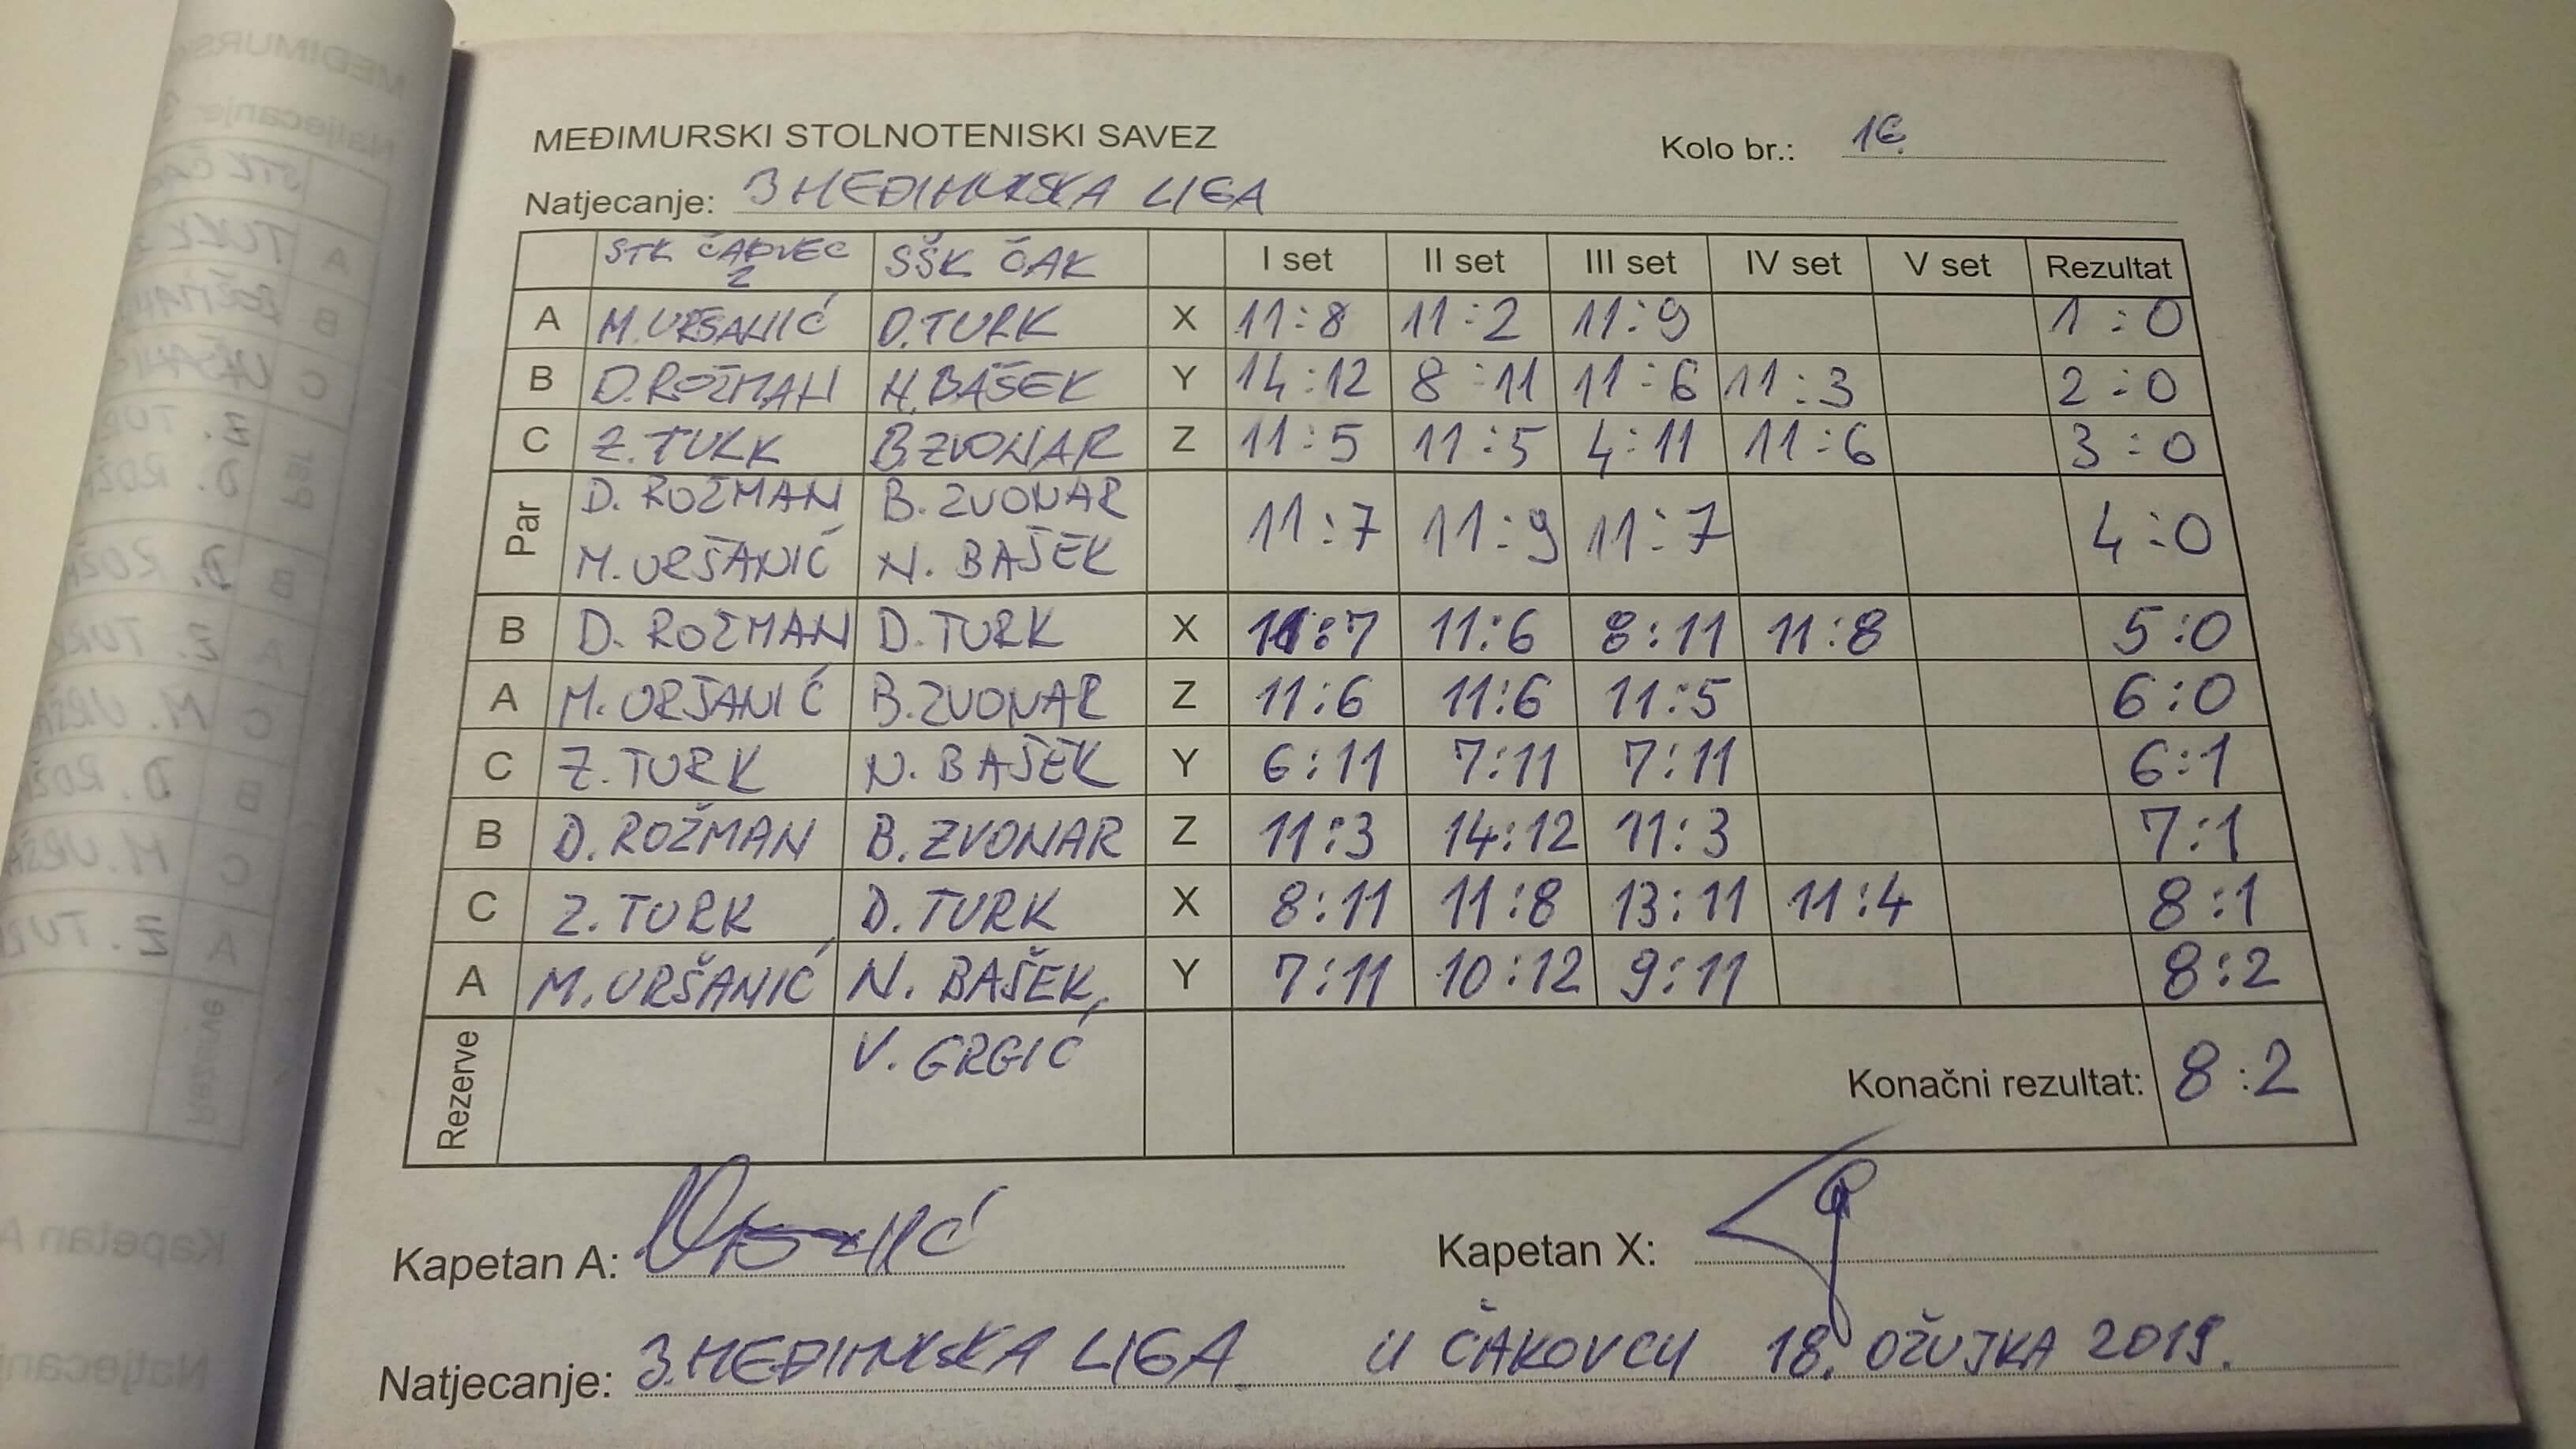 MEĐIMURSKI STOLNOTENISKI SAVEZ
Kolo br.: 16.
Natjecanje: 3 MEĐIMURSKA LIGA
STK ČAKOVEC 2 SŠK ČAK I set II set III set IV set V set Rezultat
A M. URŠANIĆ D. TURK X 11:8 11:2 11:9 1:0
B D. ROŽMAN N. BAŠEK Y 14:12 8:11 11:6 11:3 2:0
C Z. TURK B. ZVONAR Z 11:5 11:5 4:11 11:6 3:0
Par D. ROŽMAN B. ZVONAR
M. URŠANIĆ N. BAŠEK 11:7 11:9 11:7 4:0
B D. ROŽMAN D. TURK X 11:7 11:6 8:11 11:8 5:0
A M. URŠANIĆ B. ZVONAR Z 11:6 11:6 11:5 6:0
C Z. TURK N. BAŠEK Y 6:11 7:11 7:11 6:1
B D. ROŽMAN B. ZVONAR Z 11:3 14:12 11:3 7:1
C Z. TURK D. TURK X 8:11 11:8 13:11 11:4 8:1
A M. URŠANIĆ N. BAŠEK, Y 7:11 10:12 9:11 8:2
Rezerve V. GRGIĆ Konačni rezultat: 8:2
Kapetan A: Kapetan X:
Natjecanje: 3. MEĐIMURSKA LIGA. U ČAKOVCU 18. OŽUJKA 2019.